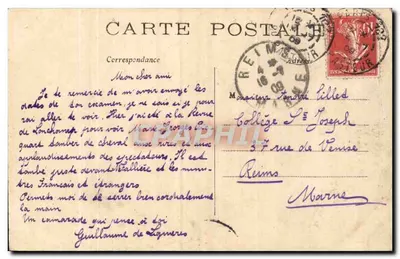 CARTE POSTALE
Correspondance
Mon cher ami
Je te remercie de m'avoir envoyé les
dates de ton examen, je ne sais si je pour
rai aller te voir. Hier j'ai été à la Revue
de Lonchamp, pour voir
quard tomber de cheval aux rires et aux
applaudissements des spectateurs. Il est
tombé juste devant Fallière et les minis-
tres Français et étrangers
Permets moi de te serrer bien cordialement
la main
Un camarade qui pense à toi
Guillaume de
REIMS
MARNE
M
Monsieur André Pillet
Collège St Joseph
37 rue de Venise
Reims
Marne